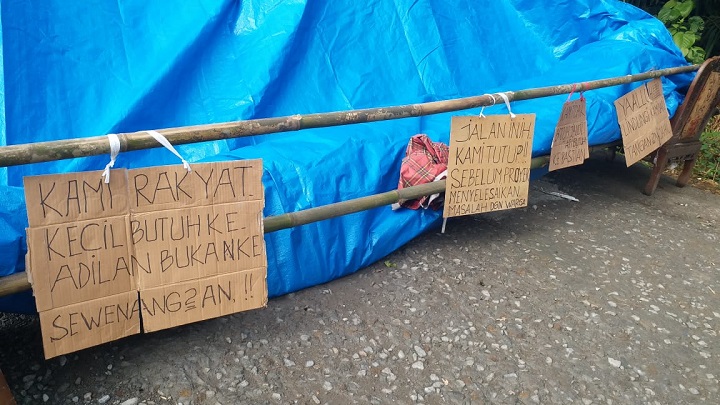 KAMI RAKYAT.
KECIL BUTUH KE-
ADILAN BUKAN KE
SEWENANG2AN.!!
JALAN INI!
KAMI TUTUP!!
SEBELLUM PROYEK
MENYELESAIKAN.
MASALAH DGN WARGA
BUTUH
YA ALLAH